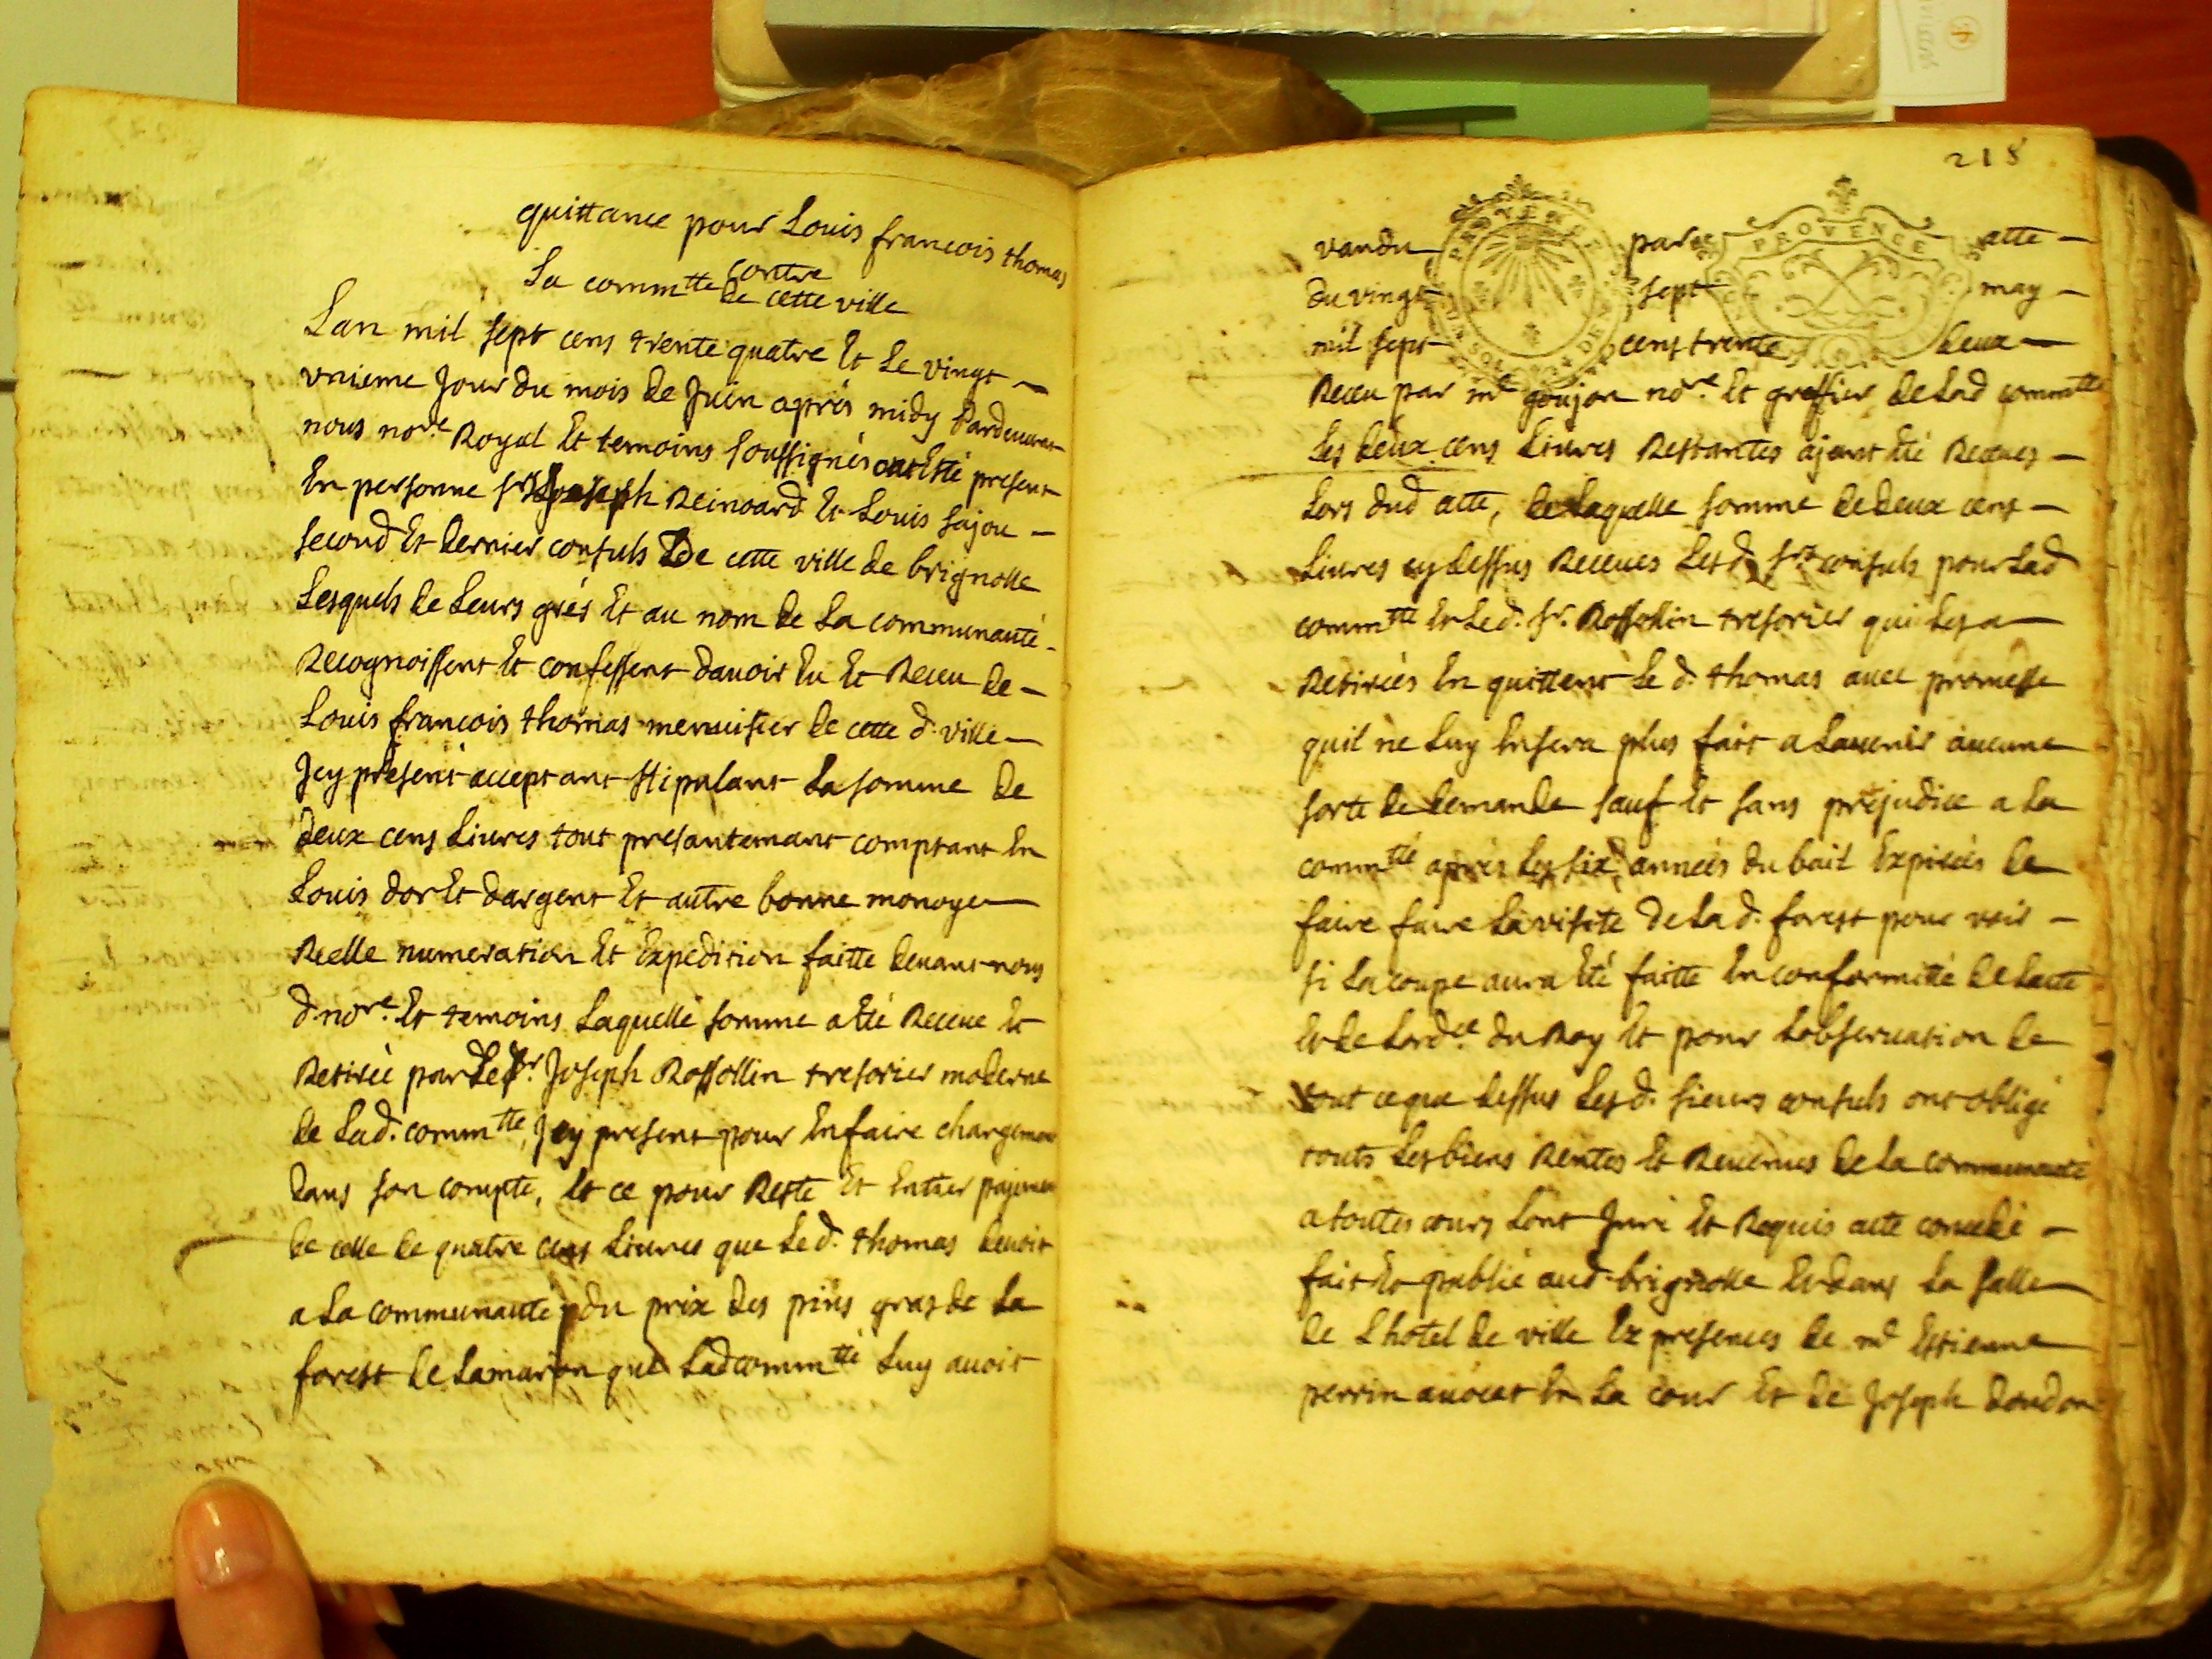 quittance pour Louis francois thomas
contre
La commtte de cette ville
Lan mil sept cens trente quatre Et Le vingt
vnieme Jour du mois de Juin aprés midy Pardeuant
nous nore Royal Et temoins soussignés ont Esté present
En personne srs Joseph Reinoard Et Louis sajou
second Et dernier consuls De cette ville de brignolle
Lesquels de Leurs grés Et au nom de La communauté
Recognoissent Et confessent dauoir Eu Et Receu de
Louis francois thomas menuisier de cette d. ville
Jcy présent acceptant stipulant La somme de
deux cens Liures tout presantemant comptant En
Louis dor Et dargent Et autre bonne monoye
Reelle numeration Et Expedition faitte deuant nous
d. nore. Et temoins Laquelle somme a Eté Receue Et
Retirée par Led sr. Joseph Rossollin tresorier moderne
de Lad. commtte, Jcy present pour En faire chargement
dans son compte, Et ce pour Reste Et Entier payemen
de celle de quatre cens Liures que Le d. thomas deuoit
a La communauté du prix des pins gras de La
forest de Lamaron que Lad commtté Luy auoit
218
PROVENCE
vandu par atte
du vingt sept may
mil sept cens trente deux
Receu par me goujon nore. Et greffier de Lad commtte
Les deux cens Liures Restantes ajant Eté Receues
Lors dud atte, de Laquelle somme de deux cens
Liures cy dessus Receues Lesd. srs consuls pour Lad
commtté Et Le d. sr. Rossollin tresorier qui Les a
Retirées En quittent Le d. thomas auec promesse
quil ne Luy En sera plus fait a Lauenir aucune
sorte de demande sauf Et sans préjudice a La
commtté aprés Les six années du bail Expirées de
faire faire La visite de La d. forest pour voir
si La coupe aura Eté faitte En conformitté de Latte
Et de Lordce. du Roy Et pour Lobseruation de
tout ce que dessus Les d. sieurs consuls ont obligé
touts Les biens Rentes Et Reuenus de La communauté
a touttes cours Lont Juré Et Requis atte concedé
fait Et publié aud brignolle Et dans La salle
de Lhotel de ville Ez presences de me Estienne
perrin auocat En La cour Et de Joseph dondon